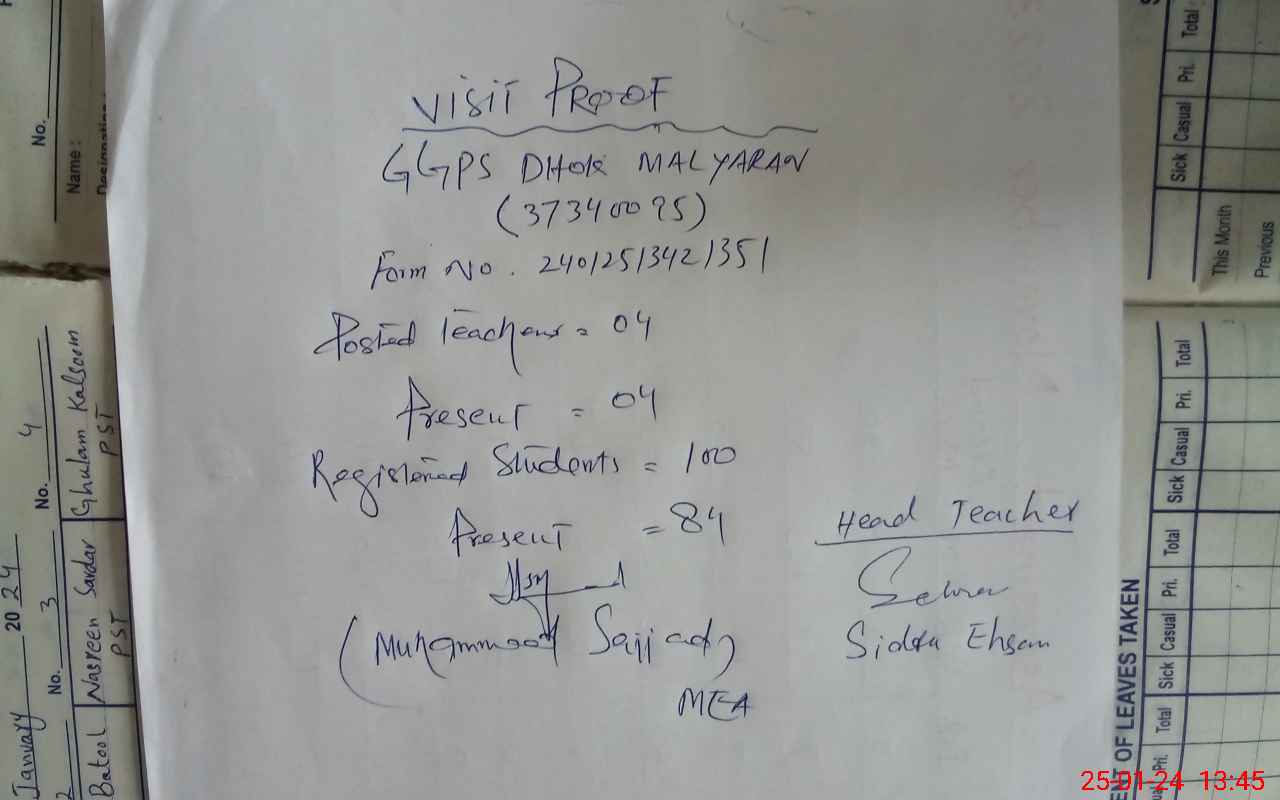 VISIT PROOF
GGPS DHOK MALYARAN
(37340095)
Form No. 24012513421351
Posted Teachers = 04
Present = 04
Registered Students = 100
Present = 84
(Muhammad Sajjad)
MEA
Head Teacher
Sidra Ehsan
No.
Name :
Designation :
January 2024
2
No. 3
No. 4
Batool
Nasreen Sardar
PST
Ghulam Kalsoom
PST
Sick Casual Pri. Total
This Month
Previous
ENT OF LEAVES TAKEN
Pri. Total Sick Casual Pri. Total Sick Casual Pri. Total
25-01-24 13:45